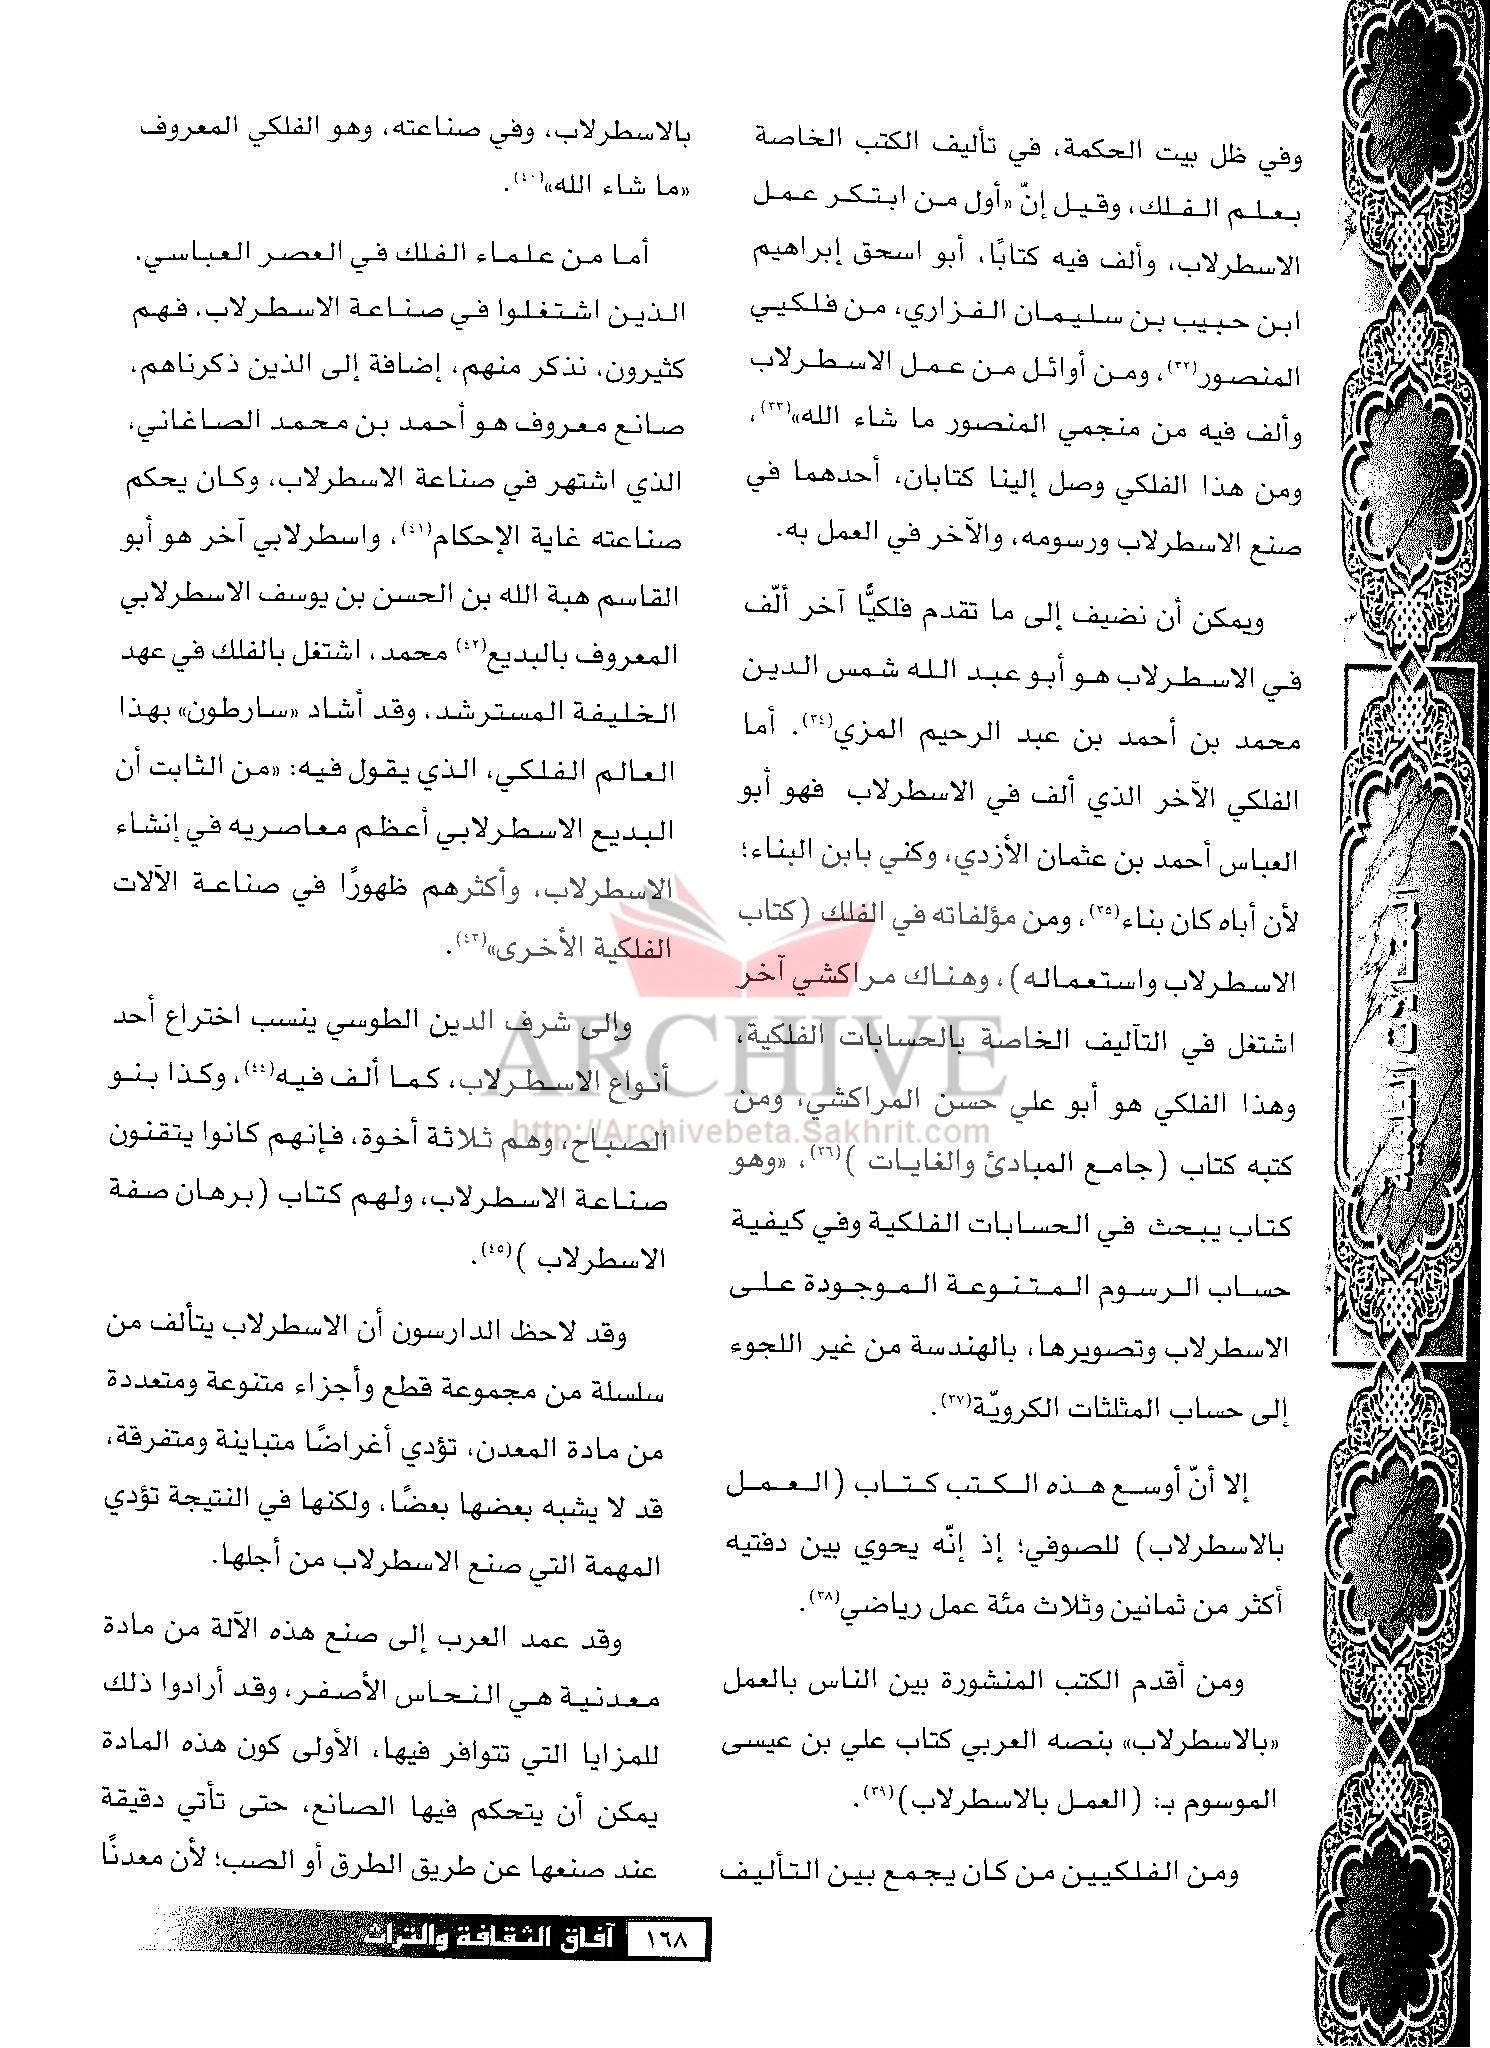 وفي ظل بيت الحكمة، في تأليف الكتب الخاصة
بعلم الفلك، وقيل إنّ «أول من ابتكر عمل
الاسطرلاب، وألف فيه كتابًا، أبو اسحق إبراهيم
ابن حبيب بن سليمان الفزاري، من فلكيي
المنصور(٣٢)، ومن أوائل من عمل الاسطرلاب
وألف فيه من منجمي المنصور ما شاء الله»(٣٣)،
ومن هذا الفلكي وصل إلينا كتابان، أحدهما في
صنع الاسطرلاب ورسومه، والآخر في العمل به.
ويمكن أن نضيف إلى ما تقدم فلكيًّا آخر ألّف
في الاسطرلاب هو أبو عبد الله شمس الدين
محمد بن أحمد بن عبد الرحيم المزي(٣٤). أما
الفلكي الآخر الذي ألف في الاسطرلاب فهو أبو
العباس أحمد بن عثمان الأزدي، وكني بابن البناء؛
لأن أباه كان بناء(٣٥)، ومن مؤلفاته في الفلك (كتاب
الاسطرلاب واستعماله)، وهناك مراكشي آخر
اشتغل في التآليف الخاصة بالحسابات الفلكية،
وهذا الفلكي هو أبو علي حسن المراكشي، ومن
كتبه كتاب (جامع المبادئ والغايات )(٣٦)، «وهو
كتاب يبحث في الحسابات الفلكية وفي كيفية
حساب الرسوم المتنوعة الموجودة على
الاسطرلاب وتصويرها، بالهندسة من غير اللجوء
إلى حساب المثلثات الكرويّة(٣٧).
إلا أنّ أوسع هذه الكتب كتاب (العمل
بالاسطرلاب) للصوفي؛ إذ إنّه يحوي بين دفتيه
أكثر من ثمانين وثلاث مئة عمل رياضي(٣٨).
ومن أقدم الكتب المنشورة بين الناس بالعمل
«بالاسطرلاب» بنصه العربي كتاب علي بن عيسى
الموسوم بـ: (العمل بالاسطرلاب)(٣٩).
ومن الفلكيين من كان يجمع بين التأليف
بالاسطرلاب، وفي صناعته، وهو الفلكي المعروف
«ما شاء الله»(٤٠).
أما من علماء الفلك في العصر العباسي،
الذين اشتغلوا في صناعة الاسطرلاب، فهم
كثيرون، نذكر منهم، إضافة إلى الذين ذكرناهم،
صانع معروف هو أحمد بن محمد الصاغاني،
الذي اشتهر في صناعة الاسطرلاب، وكان يحكم
صناعته غاية الإحكام(٤١)، واسطرلابي آخر هو أبو
القاسم هبة الله بن الحسن بن يوسف الاسطرلابي
المعروف بالبديع(٤٢) محمد، اشتغل بالفلك في عهد
الخليفة المسترشد، وقد أشاد «سارطون» بهذا
العالم الفلكي، الذي يقول فيه: «من الثابت أن
البديع الاسطرلابي أعظم معاصريه في إنشاء
الاسطرلاب، وأكثرهم ظهورًا في صناعة الآلات
الفلكية الأخرى»(٤٣).
وإلى شرف الدين الطوسي ينسب اختراع أحد
أنواع الاسطرلاب، كما ألف فيه(٤٤)، وكذا بنو
الصباح، وهم ثلاثة أخوة، فإنهم كانوا يتقنون
صناعة الاسطرلاب، ولهم كتاب (برهان صفة
الاسطرلاب )(٤٥).
وقد لاحظ الدارسون أن الاسطرلاب يتألف من
سلسلة من مجموعة قطع وأجزاء متنوعة ومتعددة
من مادة المعدن، تؤدي أغراضًا متباينة ومتفرقة،
قد لا يشبه بعضها بعضًا، ولكنها في النتيجة تؤدي
المهمة التي صنع الاسطرلاب من أجلها.
وقد عمد العرب إلى صنع هذه الآلة من مادة
معدنية هي النحاس الأصفر، وقد أرادوا ذلك
للمزايا التي تتوافر فيها، الأولى كون هذه المادة
يمكن أن يتحكم فيها الصانع، حتى تأتي دقيقة
عند صنعها عن طريق الطرق أو الصب؛ لأن معدنًا
ARCHIVE
http://Archivebeta.Sakhrit.com
١٦٨ آفاق الثقافة والتراث